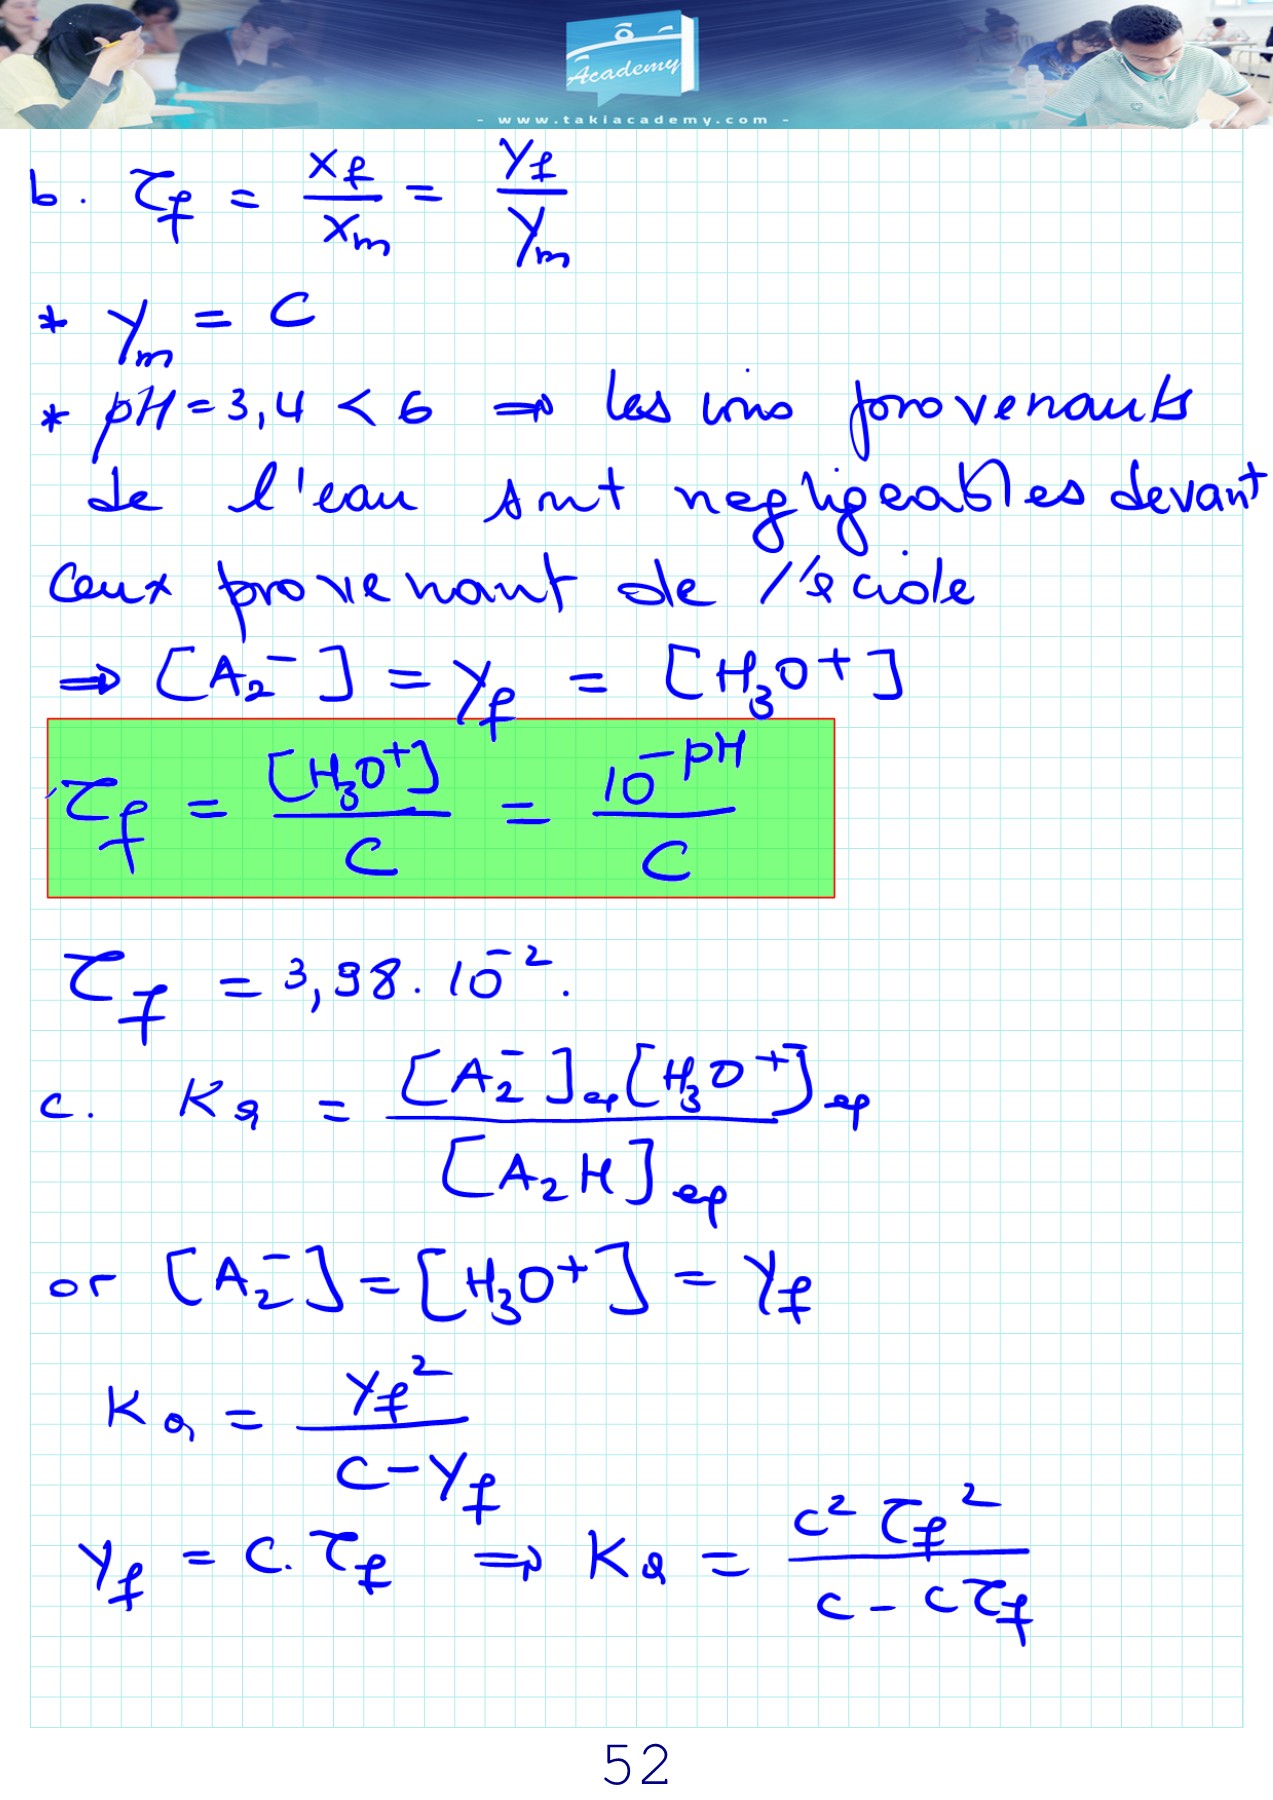 Academy
- www.takiacademy.com -
b. τf = xf/xm = yf/ym
* ym = C
* pH = 3,4 < 6 ⇒ les ions provenants
de l'eau sont negligeables devant
ceux provenant de l'acide
⇒ [A₂⁻] = yf = [H₃O⁺]
τf = [H₃O⁺]/C = 10^-pH/C
τf = 3,98.10⁻².
c. Ka = [A₂⁻]ep[H₃O⁺]ep/[A₂H]ep
or [A₂⁻] = [H₃O⁺] = yf
Ka = yf²/(C-yf)
yf = C.τf ⇒ Ka = C²τf²/(C - Cτf)
52